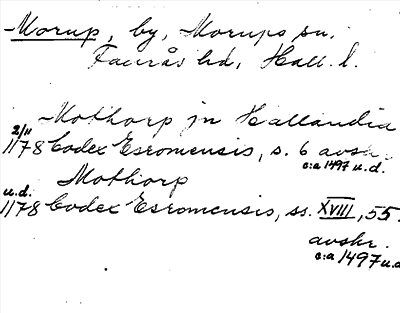 Morup, by, Morups sn.
Faurås hd, Hall. l.
Mothorp jn Hallandia
2/11
1178 Codex Esromensis, s. 6 avskr.
c:a 1497 u.d.
Mothorp
u.d.
1178 Codex Esromensis, ss. XVIII, 55.
avskr.
c:a 1497 u.d